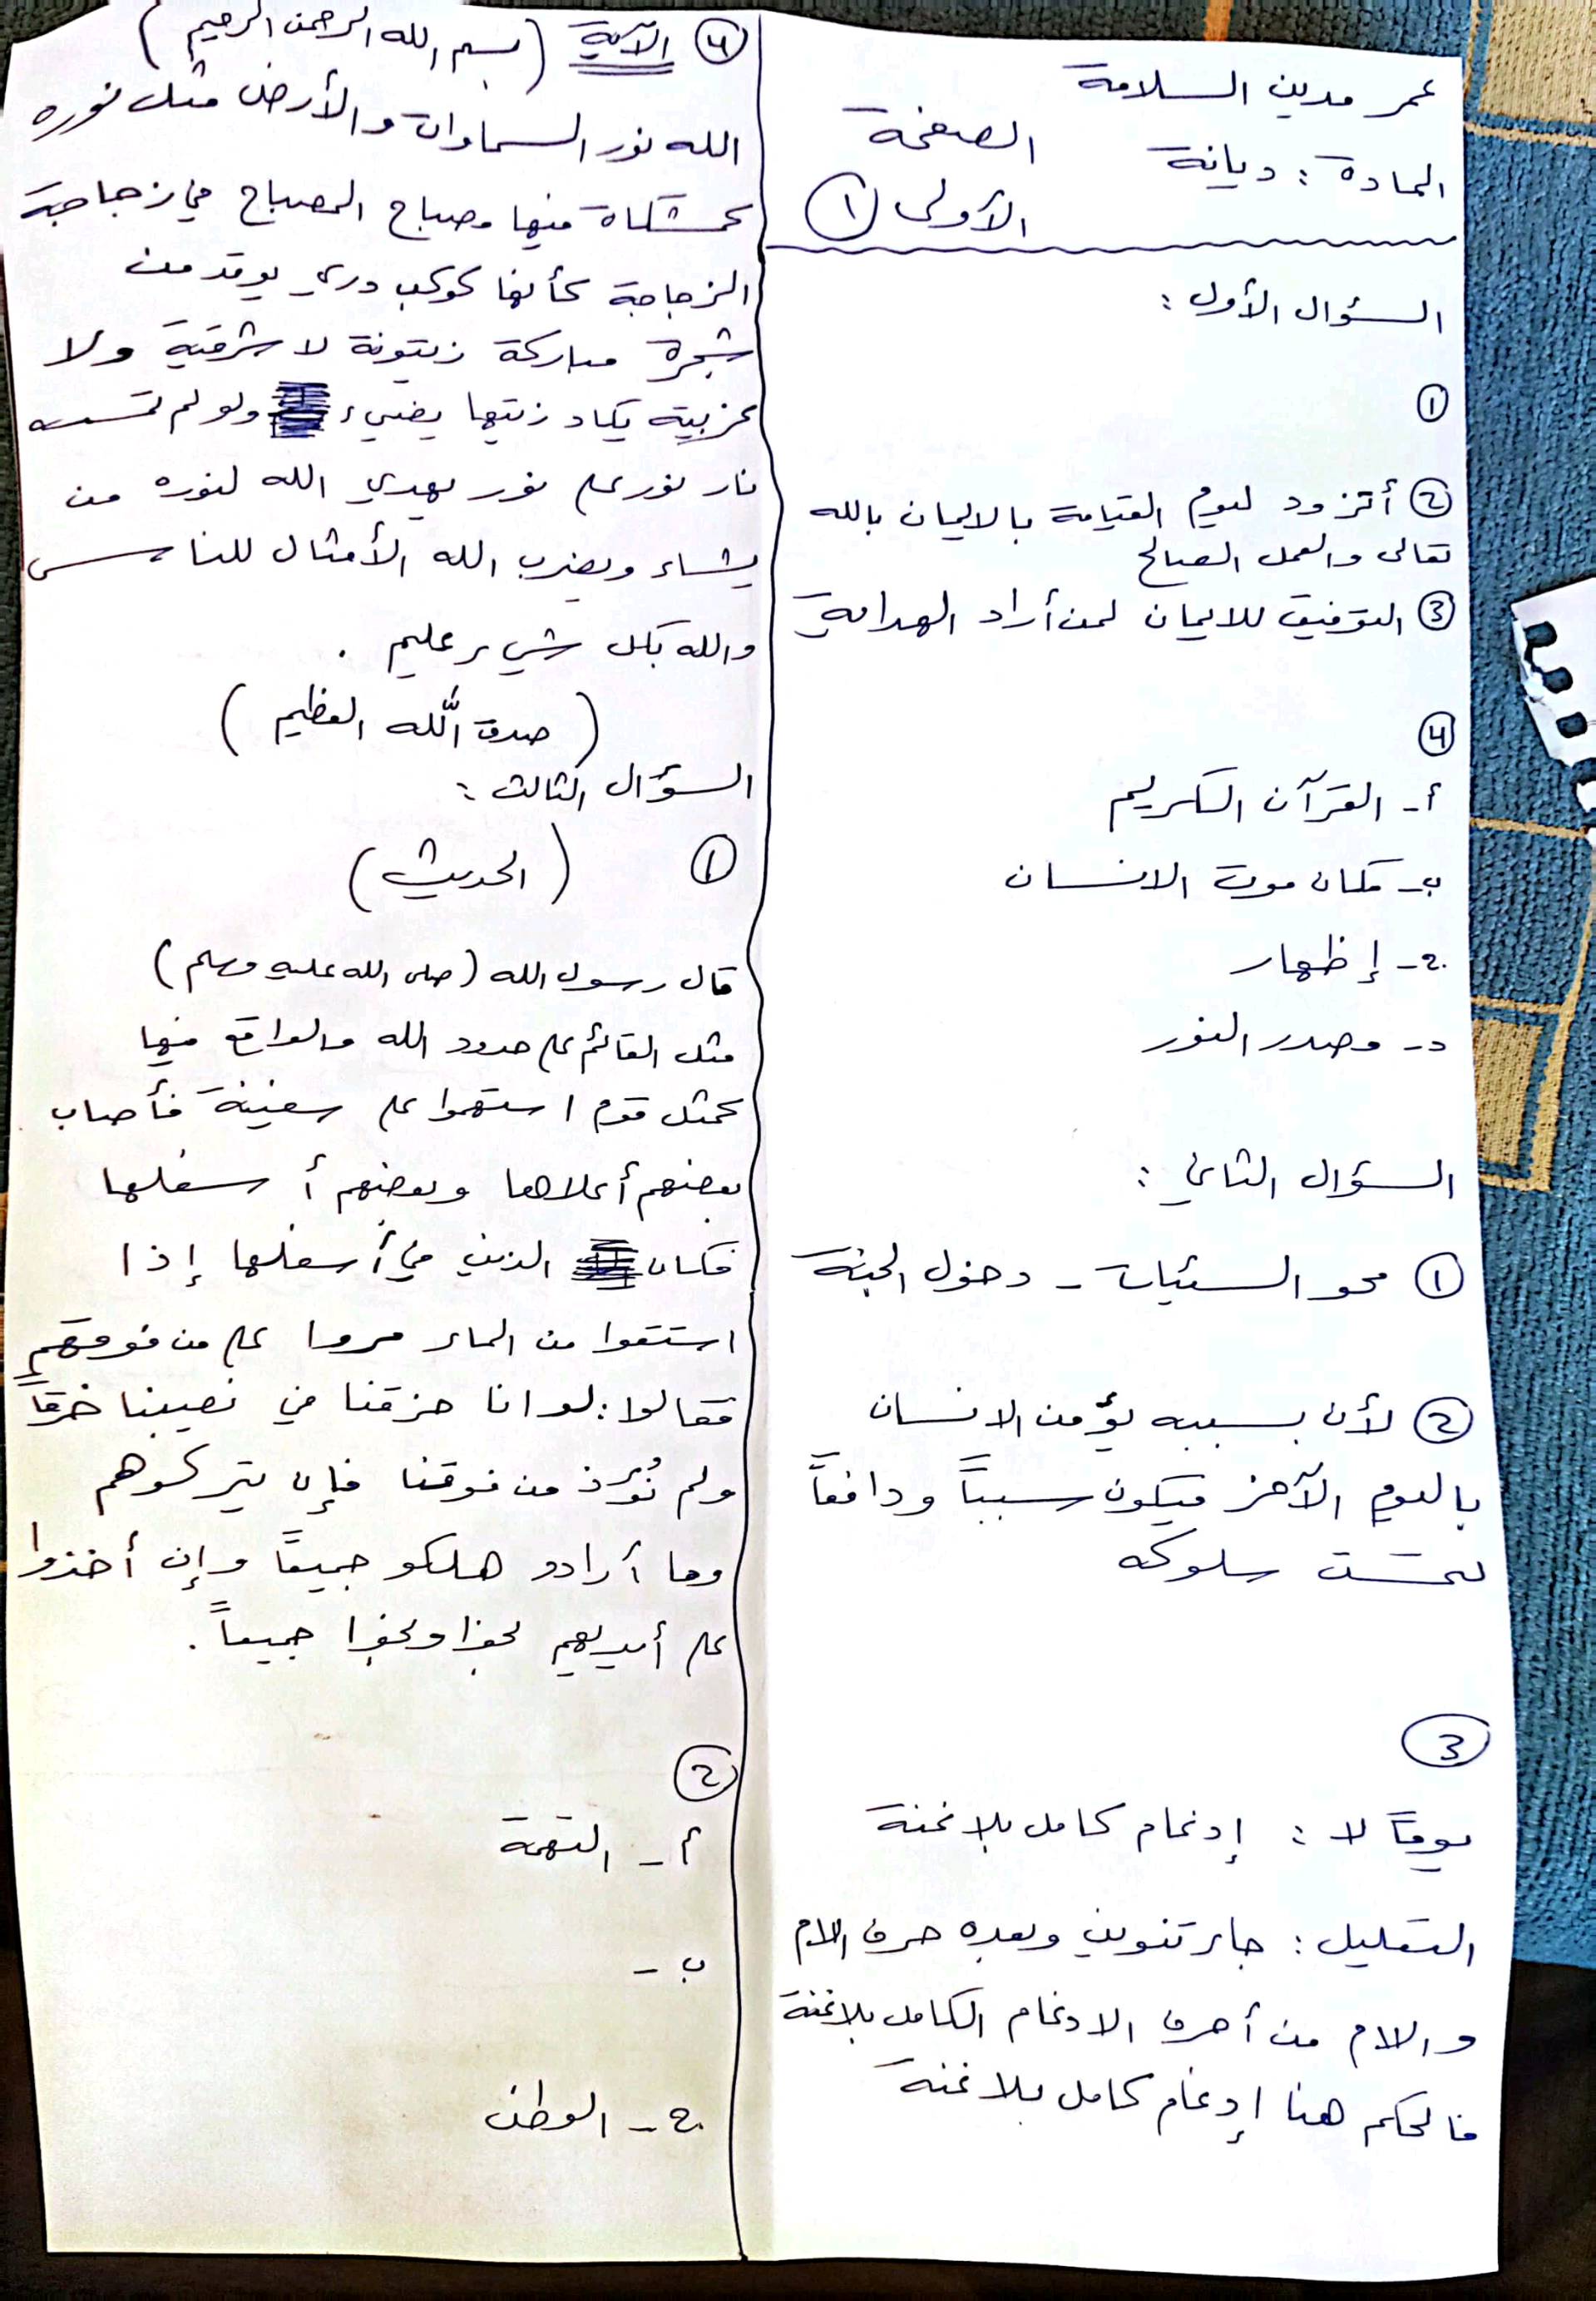 عمر مدين السلامة
المادة : ديانة الصفحة
الأولى ١
السؤال الأول :
1
2 أتزود ليوم القيامة بالايمان بالله
تعالى والعمل الصالح
3 التوفيق للايمان لمن أراد الهداية
4
أ- القرآن الكريم
ب- مكان موت الانسان
ج- إظهار
د- مصدر النور
السؤال الثاني :
1 محو السئيات - دخول الجنة
2 لأن بسببه يؤمن الانسان
باليوم الآخر فيكون سبباً ودافعاً
لحسن سلوكه
3
يوماً لا : إدغام كامل بلا غنة
التعليل : جاء تنوين وبعده حرف اللام
واللام من أحرف الادغام الكامل بلا غنة
فالحكم هنا إدغام كامل بلا غنة
4 الآية (بسم الله الرحمن الرحيم)
الله نور السماوات والأرض مثل نوره
كمشكاة فيها مصباح المصباح في زجاجة
الزجاجة كأنها كوكب دري يوقد من
شجرة مباركة زيتونة لا شرقية ولا
غربية يكاد زيتها يضيء ولو لم تمسسه
نار نور على نور يهدي الله لنوره من
يشاء ويضرب الله الأمثال للناس
والله بكل شيء عليم .
(صدق الله العظيم)
السؤال الثالث :
1 (الحديث)
قال رسول الله (صلى الله عليه وسلم)
مثل القائم على حدود الله والواقع فيها
كمثل قوم استهموا على سفينة فأصاب
بعضهم أعلاها وبعضهم أسفلها
فكان الذين في أسفلها إذا
استقوا من الماء مروا على من فوقهم
فقالوا : لو انا خرقنا في نصيبنا خرقاً
ولم نُؤذ من فوقنا فإن يتركوهم
وما أرادو هلكو جميعاً وإن أخذوا
على أيديهم نجوا ونجوا جميعاً .
2
أ - التهمة
ب -
ج - الوطن